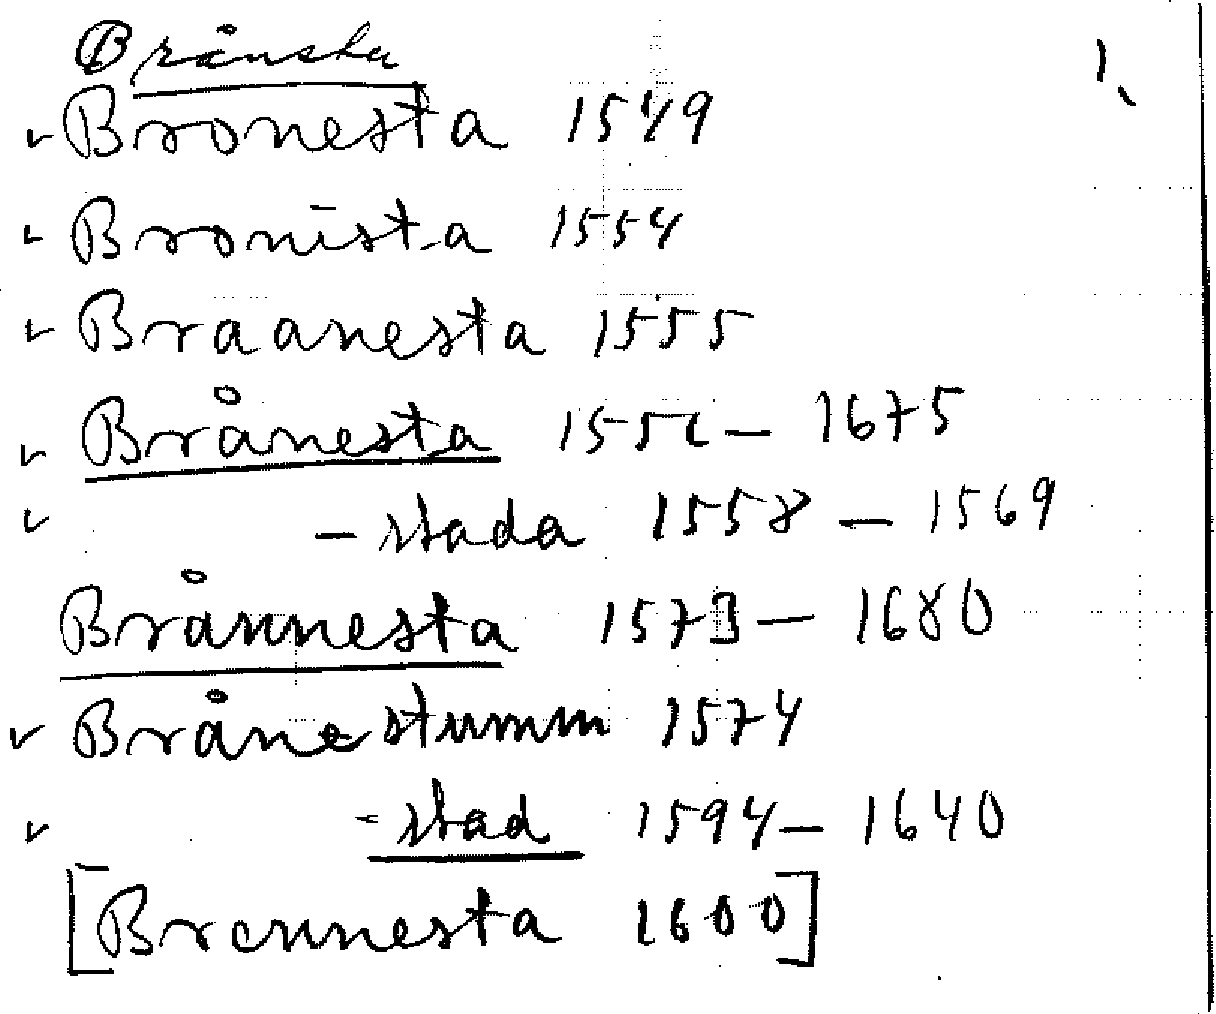 Brånsta 1.
Bronesta 1549
Bronista 1554
Braanesta 1555
Brånesta 1556 – 1675
– stada 1558 – 1569
Brånnesta 1573 – 1680
Brånestumm 1574
- stad 1594 – 1640
[Brennesta 1600]